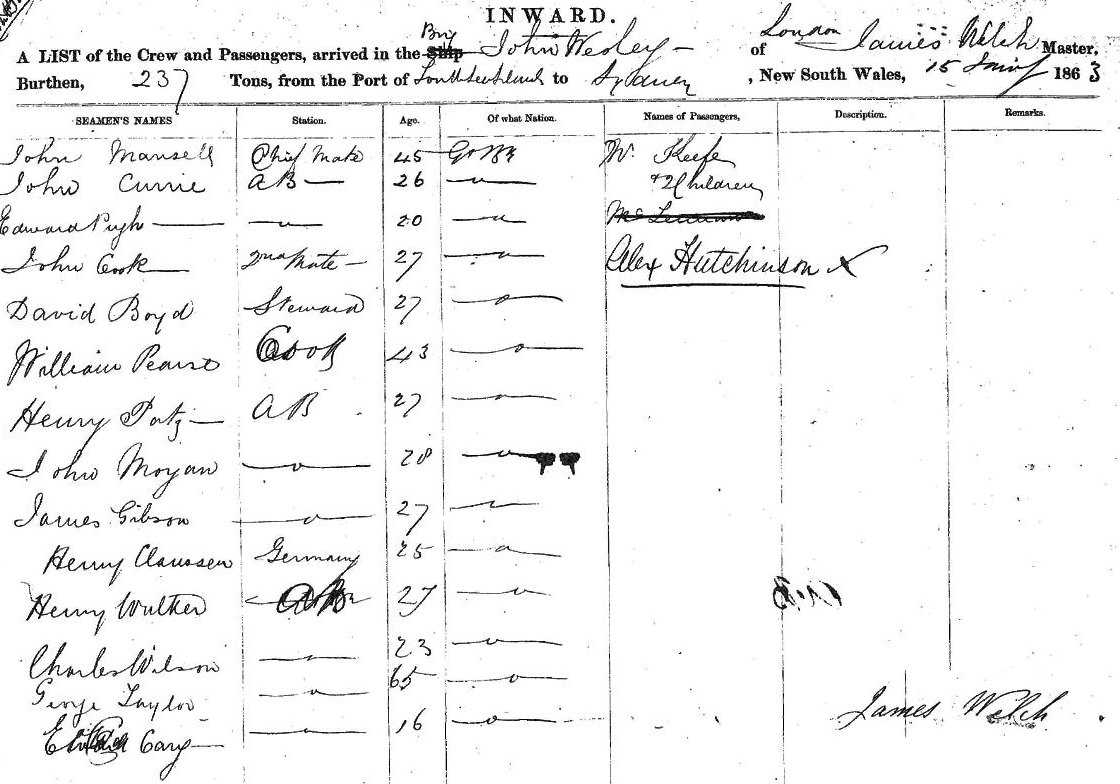 INWARD.
Brig
A LIST of the Crew and Passengers, arrived in the Ship John Wesley — of London James Welch Master,
Burthen, 237 Tons, from the Port of South Sea Islands to Sydney, New South Wales, 15 1863
SEAMEN'S NAMES Station. Age. Of what Nation. Names of Passengers, Description. Remarks.
John Mansell Chief Mate 45 Mr. Keefe
John Currie AB — 26 — " — + 2 Children
Edward Pugh — — " — 20 — " —
John Cook — 2nd Mate — 27 — " — Alex Hutchinson X
David Boyd Steward 27 — " —
William Pearse Cook 43 — " —
Henry AB 27 — " —
John Moyan — " — 28 — " —
James Gibson — " — 27 — " —
Henry Claussen Germany 25 — " —
Henry Walker AB 27 — " —
Charles Wilson — " — 23 — " —
George Taylor — " — 65 — " —
Cary — — " — 16 — " —
James Welch